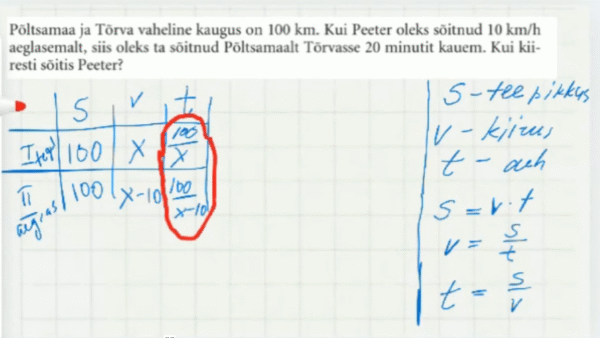 Põltsamaa ja Tõrva vaheline kaugus on 100 km. Kui Peeter oleks sõitnud 10 km/h
aeglasemalt, siis oleks ta sõitnud Põltsamaalt Tõrvasse 20 minutit kauem. Kui kii-
resti sõitis Peeter?
S v t
I 100 x 100/x
II aeglas 100 x-10 100/x-10
S - tee pikkus
v - kiirus
t - aeh
S = v · t
v = s/t
t = s/v